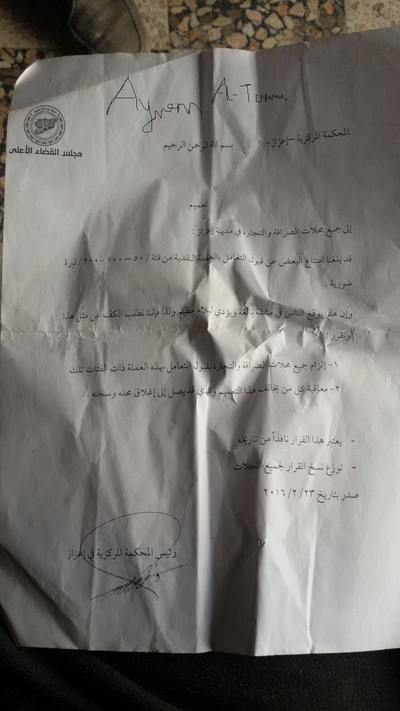 Aymenn Al-Tamimi
المحكمة المركزية – إعزاز-
مجلس القضاء الأعلى
بسم الله الرحمن الرحيم
تعميم
إلى جميع محلات الصرافة والتجارة في مدينة إعزاز :
قد بلغنا امتناع البعض عن قبول التعامل بالعملة النقدية من فئة /٥٠ – ١٠٠ – ٢٠٠/ ليرة
سورية .
وإن هذا يوقع الناس في مشقة بالغة ويؤدي لبلاء عظيم ولذا فإننا نطلب الكف عن مثل هذا
ونقرر :
١- إلزام جميع محلات الصرافة والتجارة بقبول التعامل بهذه العملة ذات الفئات تلك
٢- معاقبة كل من يخالف هذا التعميم والذي قد يصل إلى إغلاق محله وسجنه .
- يعتبر هذا القرار نافذاً من تاريخه
- توزع نسخ القرار لجميع المحلات
صدر بتاريخ ٢٣/ ٢/ ٢٠١٦
رئيس المحكمة المركزية في إعزاز